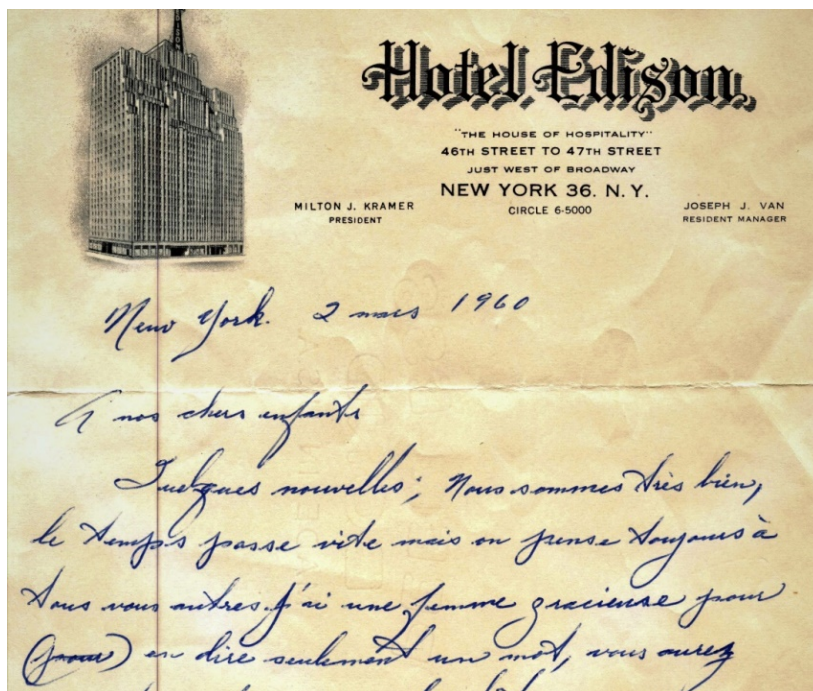 EDISON
Hotel Edison
"THE HOUSE OF HOSPITALITY"
46TH STREET TO 47TH STREET
JUST WEST OF BROADWAY
NEW YORK 36. N. Y.
CIRCLE 6-5000
MILTON J. KRAMER
PRESIDENT
JOSEPH J. VAN
RESIDENT MANAGER
New York. 2 mars 1960
A nos chers enfants
Quelques nouvelles; Nous sommes très bien,
le temps passe vite mais on pense toujours à
tous vous autres. J'ai une femme gracieuse pour
(pour) en dire seulement un mot, vous aurez